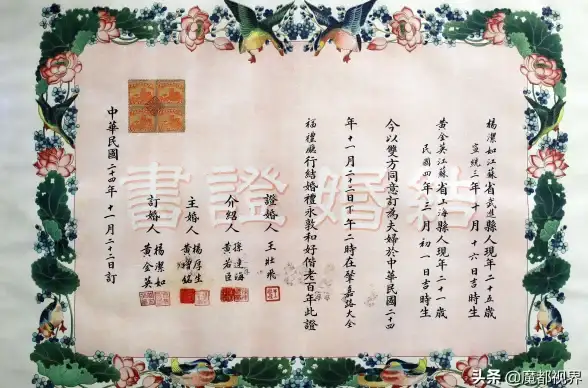 結婚證書
楊潔如江蘇省武進縣人現年二十五歲
宣統三年十月十六日吉時生
黃金英江蘇省上海縣人現年二十一歲
民國四年三月初一日吉時生
今以雙方同意訂為夫婦於中華民國二十四
年十一月二十二日下午二時在肇嘉路大全
福禮廳行結婚禮永敦和好偕老百年此證
證婚人 王壯飛
介紹人
徐達海
黃若臣
主婚人
楊厚生
黃增銘
訂婚人
楊潔如
黃金英
中華民國二十四年十一月二十二日訂
头条 @魔都视界